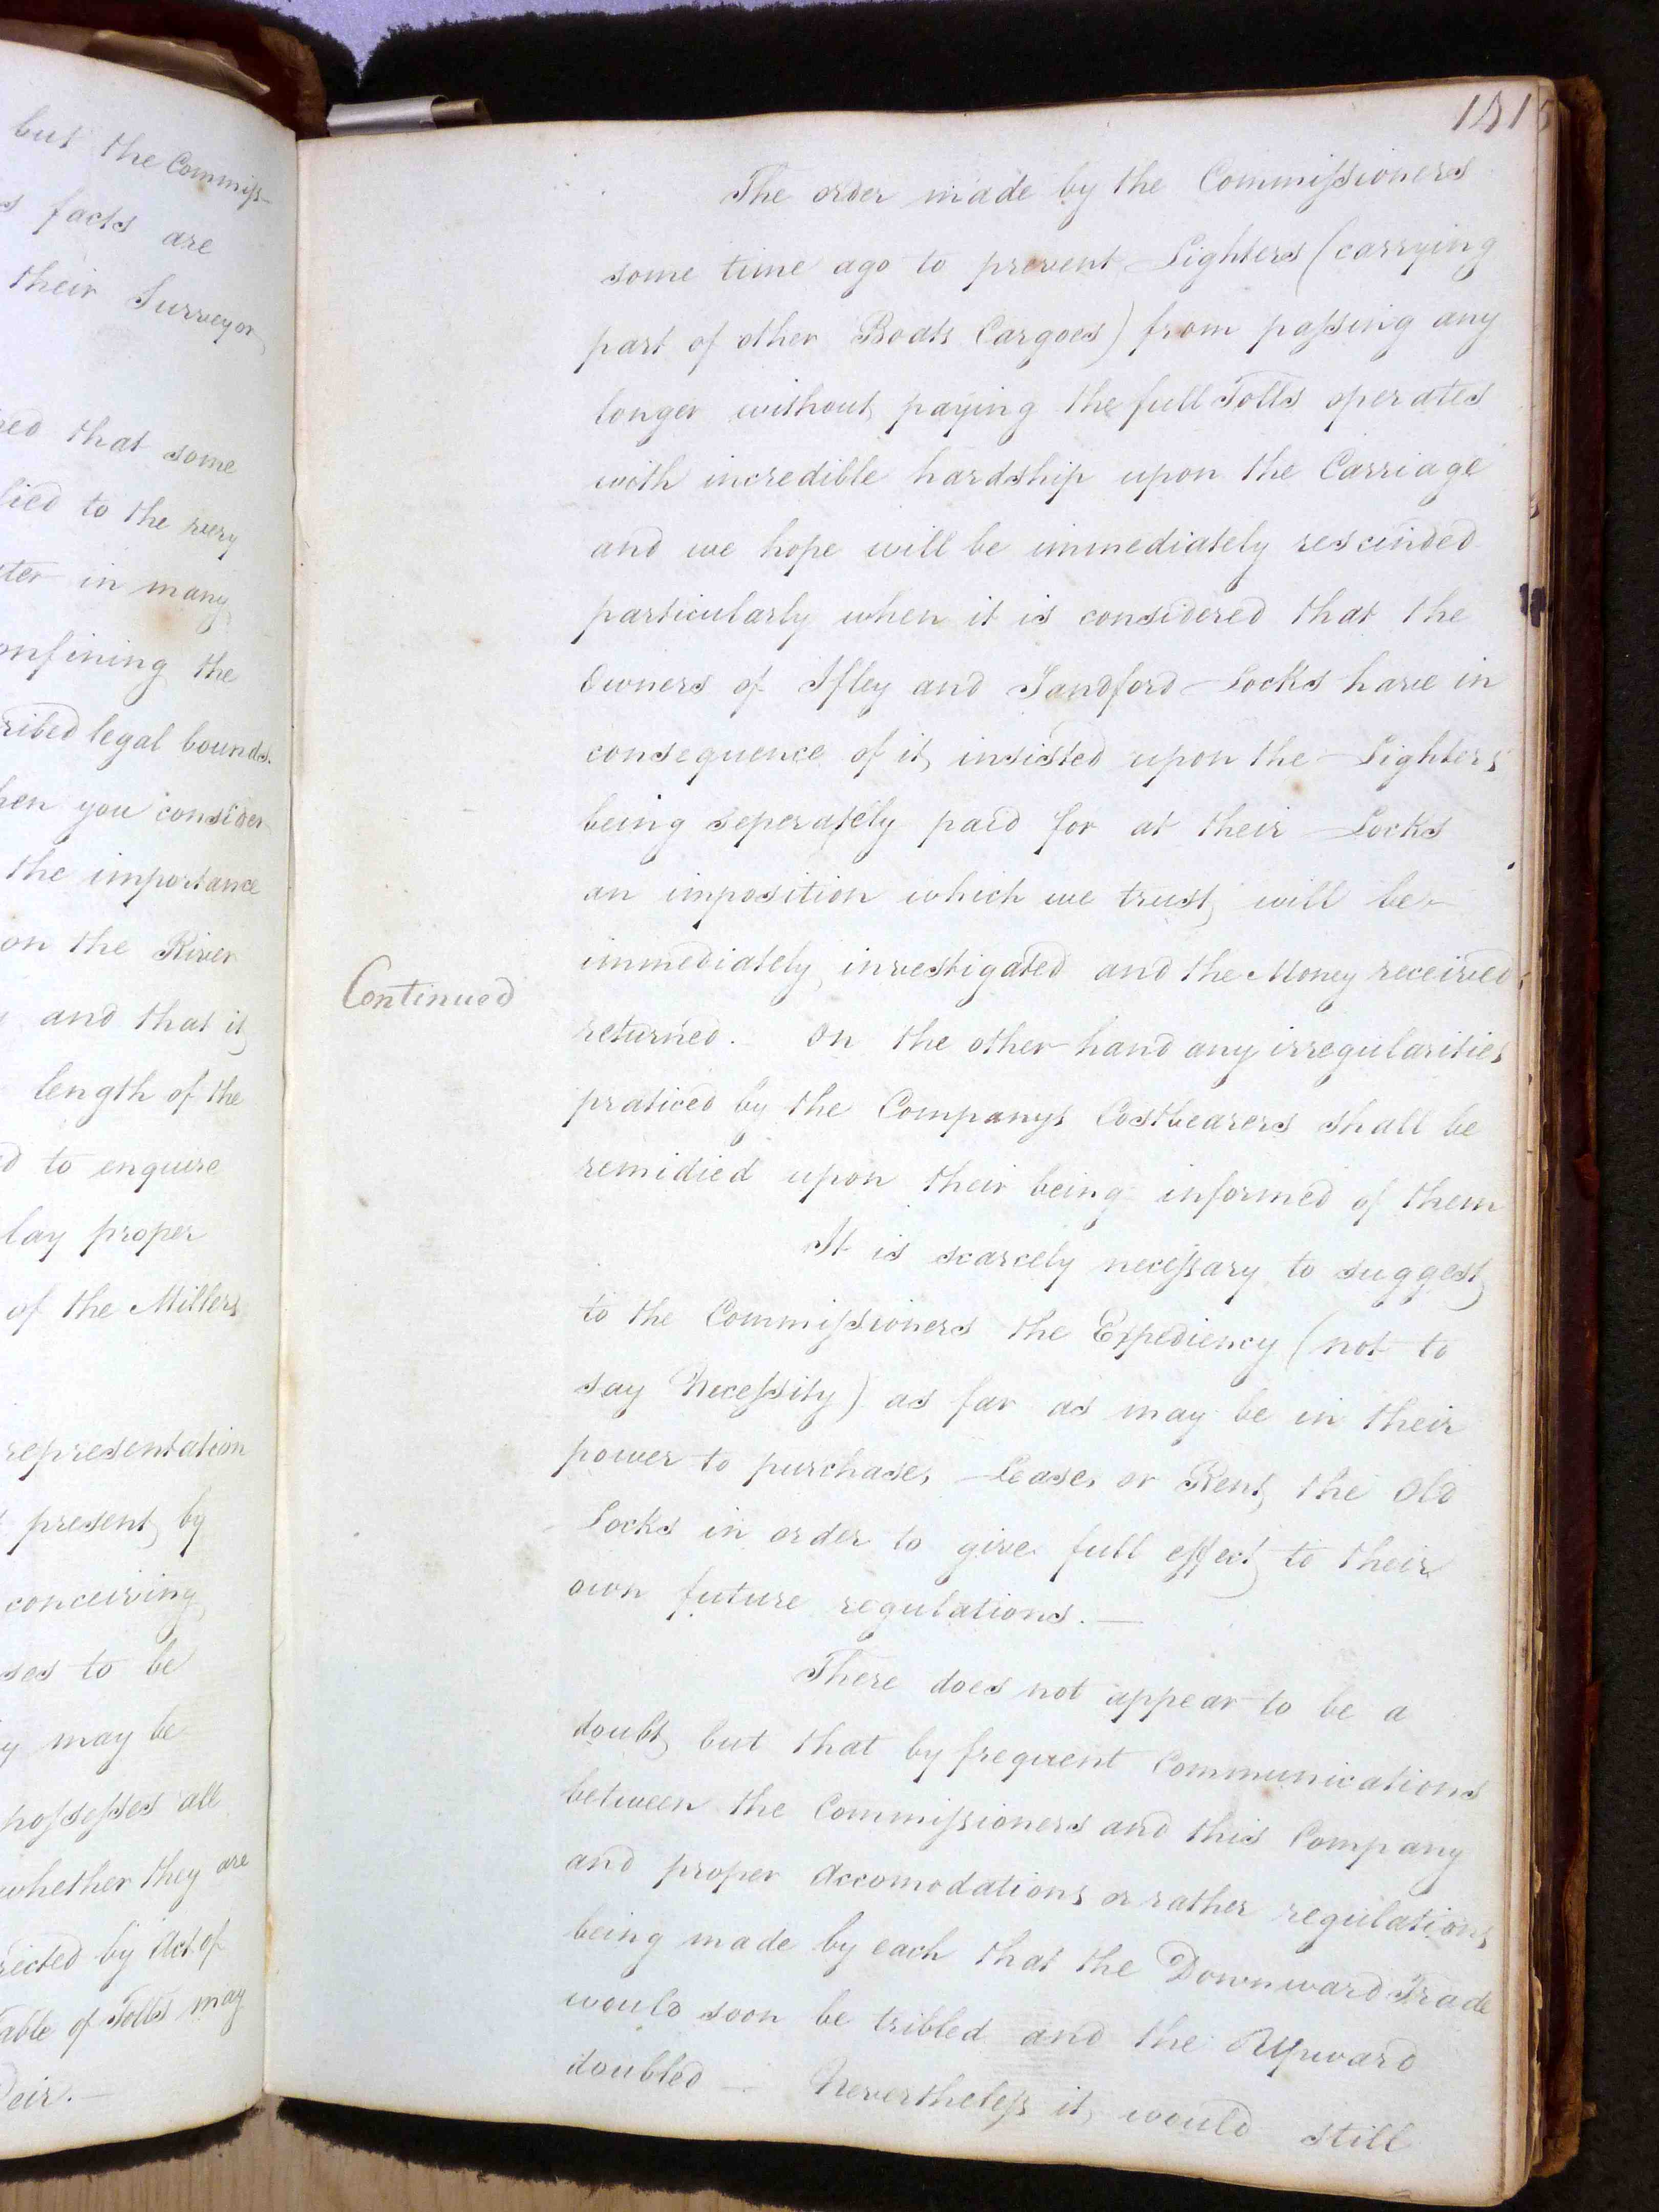 but the Commiss-
s facts are
their Surveyor
that some
lied to the very
in many
onfining the
ribed legal bounds.
hen you consider
the importance
on the River
and that it
length of the
d to enquire
lay proper
of the Millers
representation
present by
conceiving
ses to be
may be
possesses all
whether they are
rected by Act of
able of Tolls may
Weir.—
141
The order made by the Commissioners
some time ago to prevent Lighters (carrying
part of other Boats Cargoes) from passing any
longer without paying the full Tolls operates
with incredible hardship upon the Carriage
and we hope will be immediately rescinded
particularly when it is considered that the
Owners of Ifley and Sandford Locks have in
consequence of it insisted upon the Lighters
being seperately paid for at their Locks
an imposition which we trust will be
immediately investigated and the Money received
Continued
returned. On the other hand any irregularities
praticed by the Companys Costbearers shall be
remidied upon their being informed of them
It is scarcely necessary to suggest
to the Commissioners the Expediency (not to
say Necessity) as far as may be in their
power to purchase, Lease, or Rent the Old
Locks in order to give full effect to their
own future regulations.—
There does not appear to be a
doubt but that by frequent Communications
between the Commissioners and this Company
and proper Accomodations or rather regulations
being made by each that the Downward Trade
would soon be tribled and the Upward
doubled — Nevertheless it would still